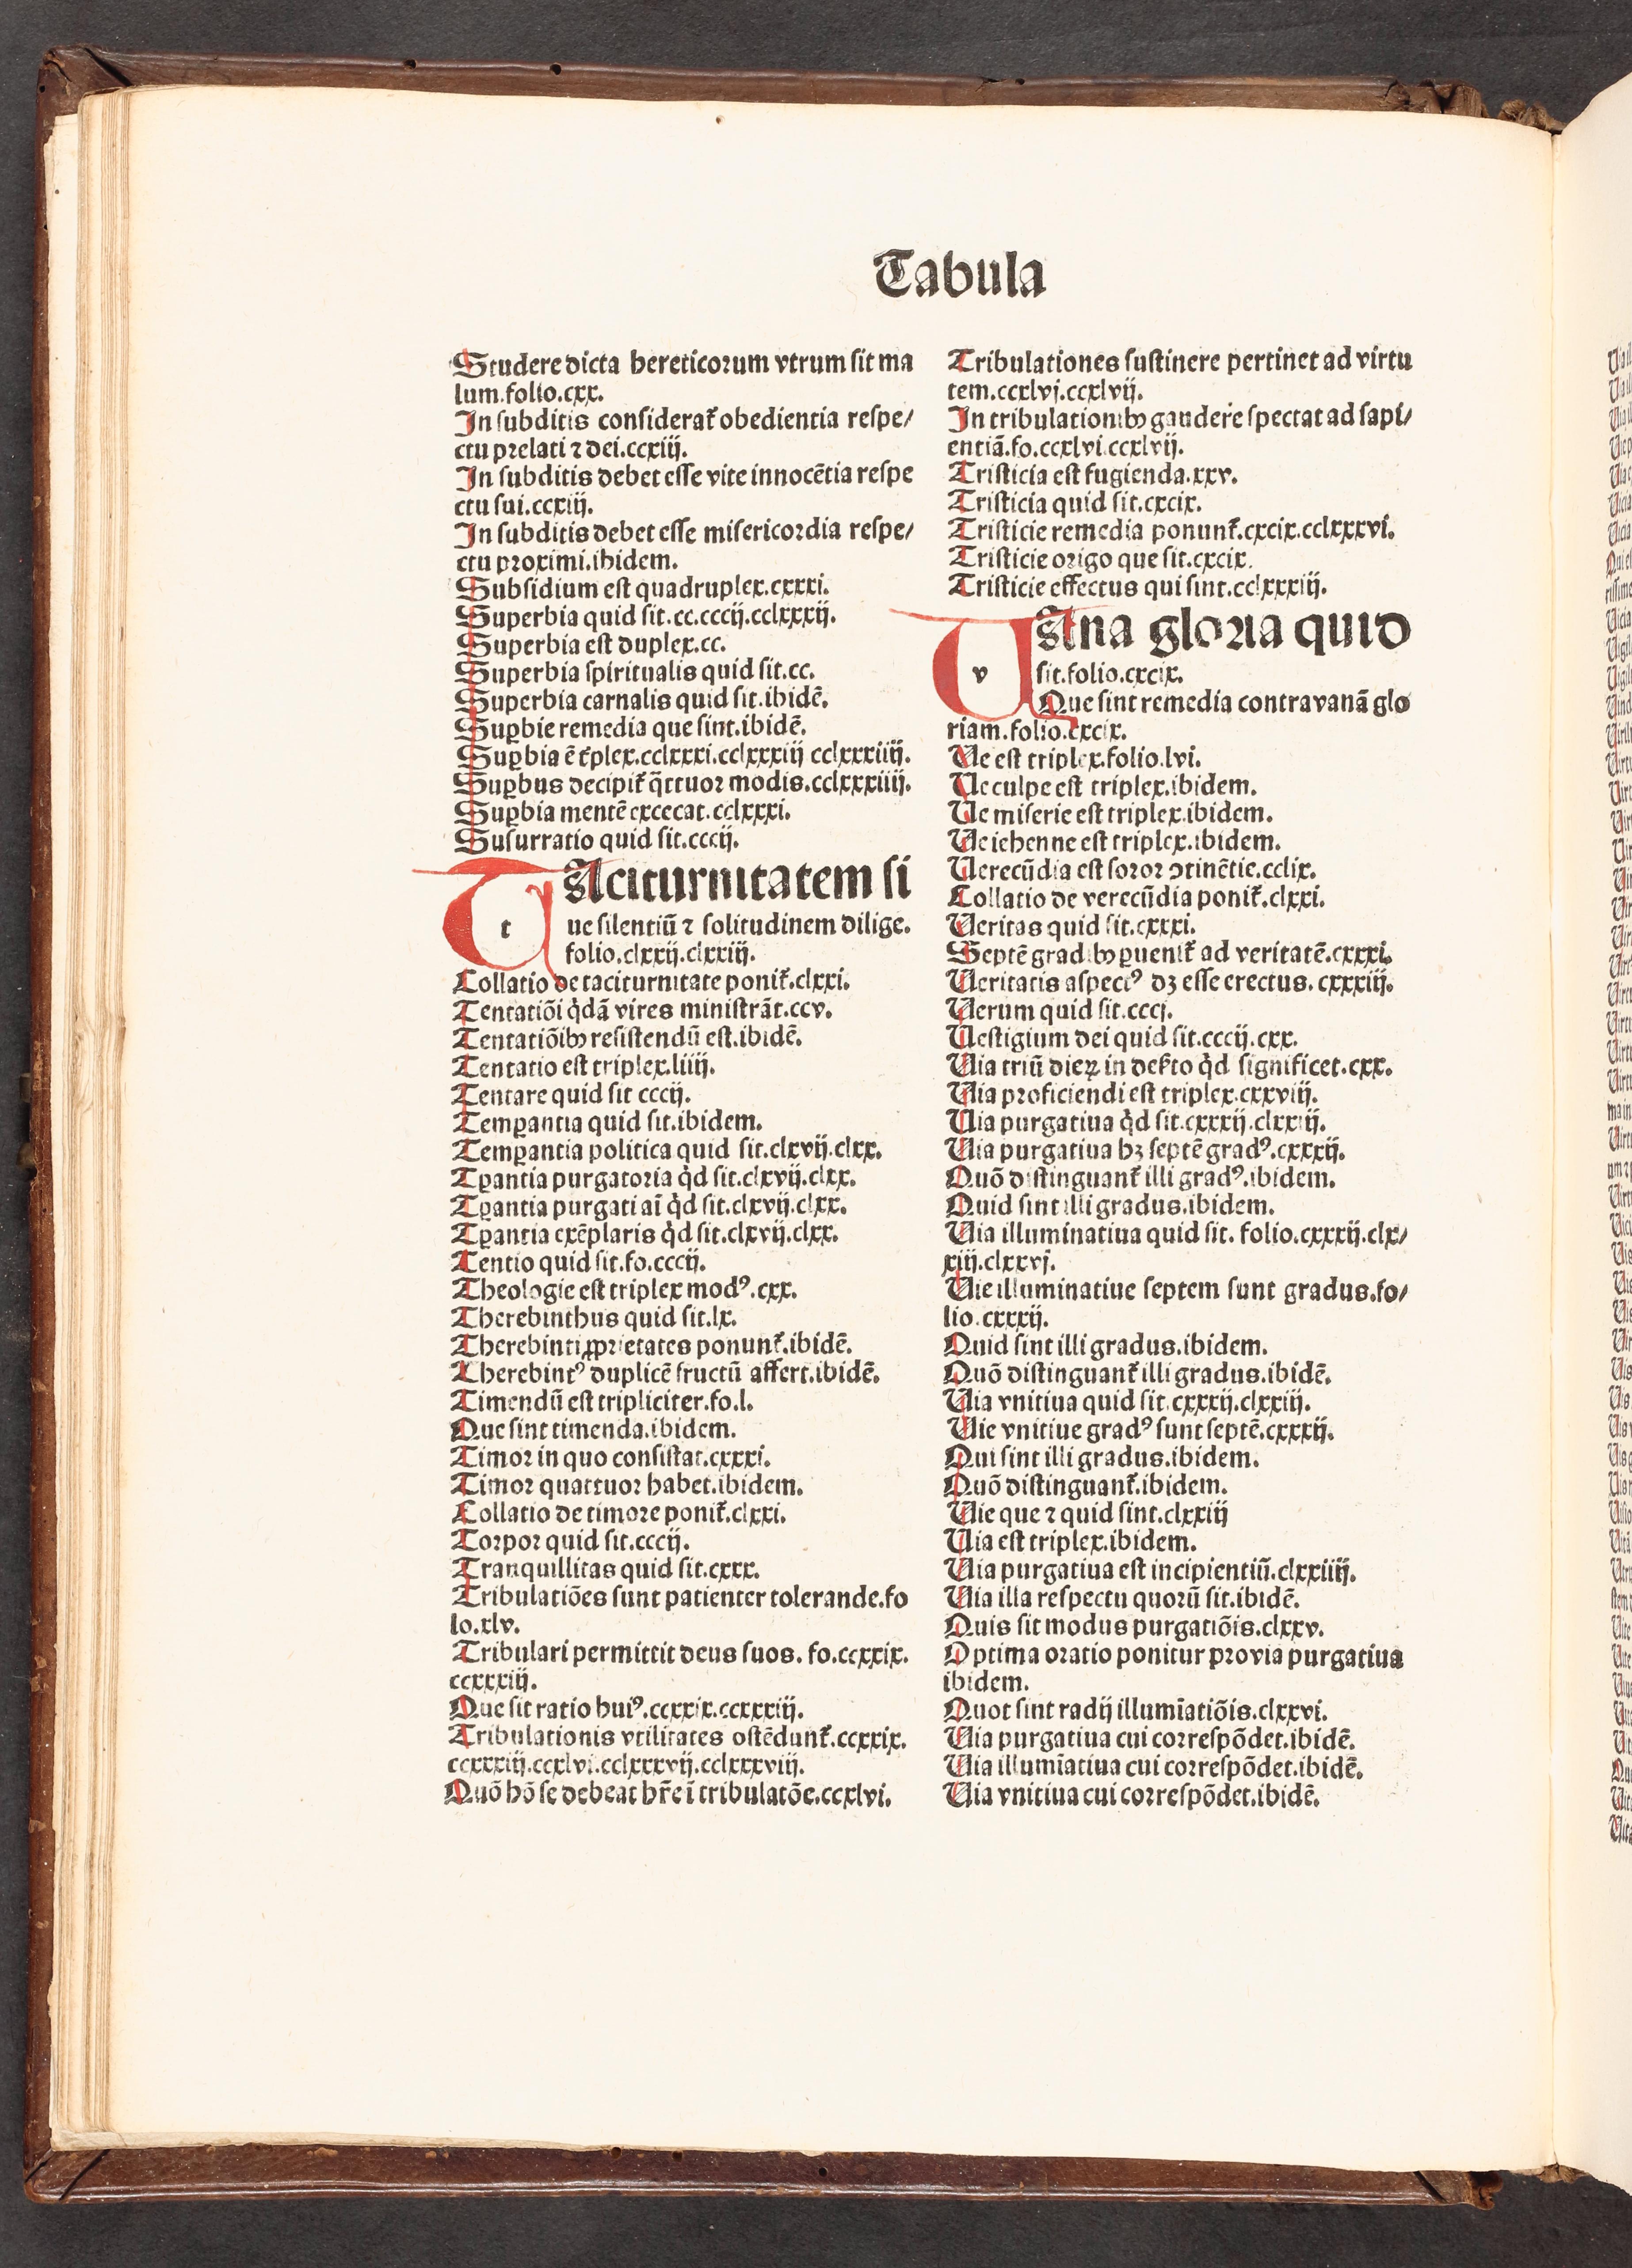 Tabula
Studere dicta hereticorum vtrum sit ma
lum.folio.cxx.
In subditis considerat᷑ obedientia respe/
ctu prelati ⁊ dei.ccxiij.
In subditis debet esse vite innocẽtia respe
ctu sui.ccxiij.
In subditis debet esse misericordia respe/
ctu proximi.ibidem.
Subsidium est quadruplex.cxxxi.
Superbia quid sit.cc.cccij.cclxxxij.
Superbia est duplex.cc.
Superbia spiritualis quid sit.cc.
Superbia carnalis quid sit.ibidẽ.
Suꝑbie remedia que sint.ibidẽ.
Suꝑbia ẽ t᷑plex.cclxxxi.cclxxxiij cclxxxiiij.
Suꝑbus decipit᷑ q̃ttuor modis.cclxxxiiij.
Suꝑbia mentẽ excecat.cclxxxi.
Susurratio quid sit.cccij.
TAciturnitatem si
ue silentiũ ⁊ solitudinem dilige.
folio.clxxij.clxxiij.
Collatio de taciturnitate ponit᷑.clxxi.
Tentatiõi q̇dã vires ministrãt.ccv.
Tentatiõibꝰ resistendũ est.ibidẽ.
Tentatio est triplex.liiij.
Tentare quid sit cccij.
Temꝑantia quid sit.ibidem.
Temꝑantia politica quid sit.clxvij.clxx.
Tꝑantia purgatoria q̇d sit.clxvij.clxx.
Tꝑantia purgati aĩ q̇d sit.clxvij.clxx.
Tꝑantia exẽplaris q̇d sit.clxvij.clxx.
Tentio quid sit.fo.cccij.
Theologie est triplex modꝰ.cxx.
Therebinthus quid sit.lx.
Therebinti ꝓprietates ponunt᷑.ibidẽ.
Therebintꝰ duplicẽ fructũ affert.ibidẽ.
Timendũ est tripliciter.fo.l.
Que sint timenda.ibidem.
Timor in quo consistat.cxxxi.
Timor quattuor habet.ibidem.
Collatio de timore ponit᷑.clxxi.
Torpor quid sit.cccij.
Tranquillitas quid sit.cxxx.
Tribulatiões sunt patienter tolerande.fo
lo.xlv.
Tribulari permittit deus suos. fo.ccxxix.
ccxxxiij.
Que sit ratio huiꝰ.ccxxix.ccxxxiij.
Tribulationis vtilitates ostẽdunt᷑.ccxxix.
ccxxxiij.ccxlvi.cclxxxvij.cclxxxviij.
Quõ hõ se debeat hr̃e ĩ tribulatõe.ccxlvi.
Tribulationes sustinere pertinet ad virtu
tem.ccxlvj.ccxlvij.
In tribulationibꝰ gaudere spectat ad sapi/
entiã.fo.ccxlvi.ccxlvij.
Tristicia est fugienda.xxv.
Tristicia quid sit.cxcix.
Tristicie remedia ponunt᷑.cxcix.cclxxxvi.
Tristicie origo que sit.cxcix.
Tristicie effectus qui sint.cclxxxiij.
VAna gloria quid
sit.folio.cxcix.
Que sint remedia contra vanã glo
riam.folio.cxcix.
Ue est triplex.folio.lvi.
Ue culpe est triplex.ibidem.
Ue miserie est triplex.ibidem.
Ue iehenne est triplex.ibidem.
Uerecũdia est soror ↄtinẽtie.cclix.
Collatio de verecũdia ponit᷑.clxxi.
Ueritas quid sit.cxxxi.
Septẽ gradibꝰ ꝑuenit᷑ ad veritatẽ.cxxxi.
Ueritatis aspectꝰ dꝫ esse erectus. cxxxiij.
Uerum quid sit.cccj.
Uestigium dei quid sit.cccij.cxx.
Uia triũ dieꝝ in deẜto q̇d significet.cxx.
Uia proficiendi est triplex.cxxviij.
Uia purgatiua q̇d sit.cxxxij.clxxiij.
Uia purgatiua hꝫ septẽ gradꝰ.cxxxij.
Quõ distinguant᷑ illi gradꝰ.ibidem.
Quid sint illi gradus.ibidem.
Uia illuminatiua quid sit. folio.cxxxij.clx/
xiij.clxxvj.
Uie illuminatiue septem sunt gradus.fo/
lio.cxxxij.
Quid sint illi gradus.ibidem.
Quõ distinguant᷑ illi gradus.ibidẽ.
Uia vnitiua quid sit.cxxxij.clxxiij.
Uie vnitiue gradꝰ sunt septẽ.cxxxij.
Qui sint illi gradus.ibidem.
Quõ distinguant᷑.ibidem.
Uie que ⁊ quid sint.clxxiij
Uia est triplex.ibidem.
Uia purgatiua est incipientiũ.clxxiiij.
Uia illa respectu quorũ sit.ibidẽ.
Quis sit modus purgatiõis.clxxv.
Optima oratio ponitur pro via purgatiua
ibidem.
Quot sint radij illumĩatiõis.clxxvi.
Uia purgatiua cui correspõdet.ibidẽ.
Uia illumĩatiua cui correspõdet.ibidẽ.
Uia vnitiua cui correspõdet.ibidẽ.